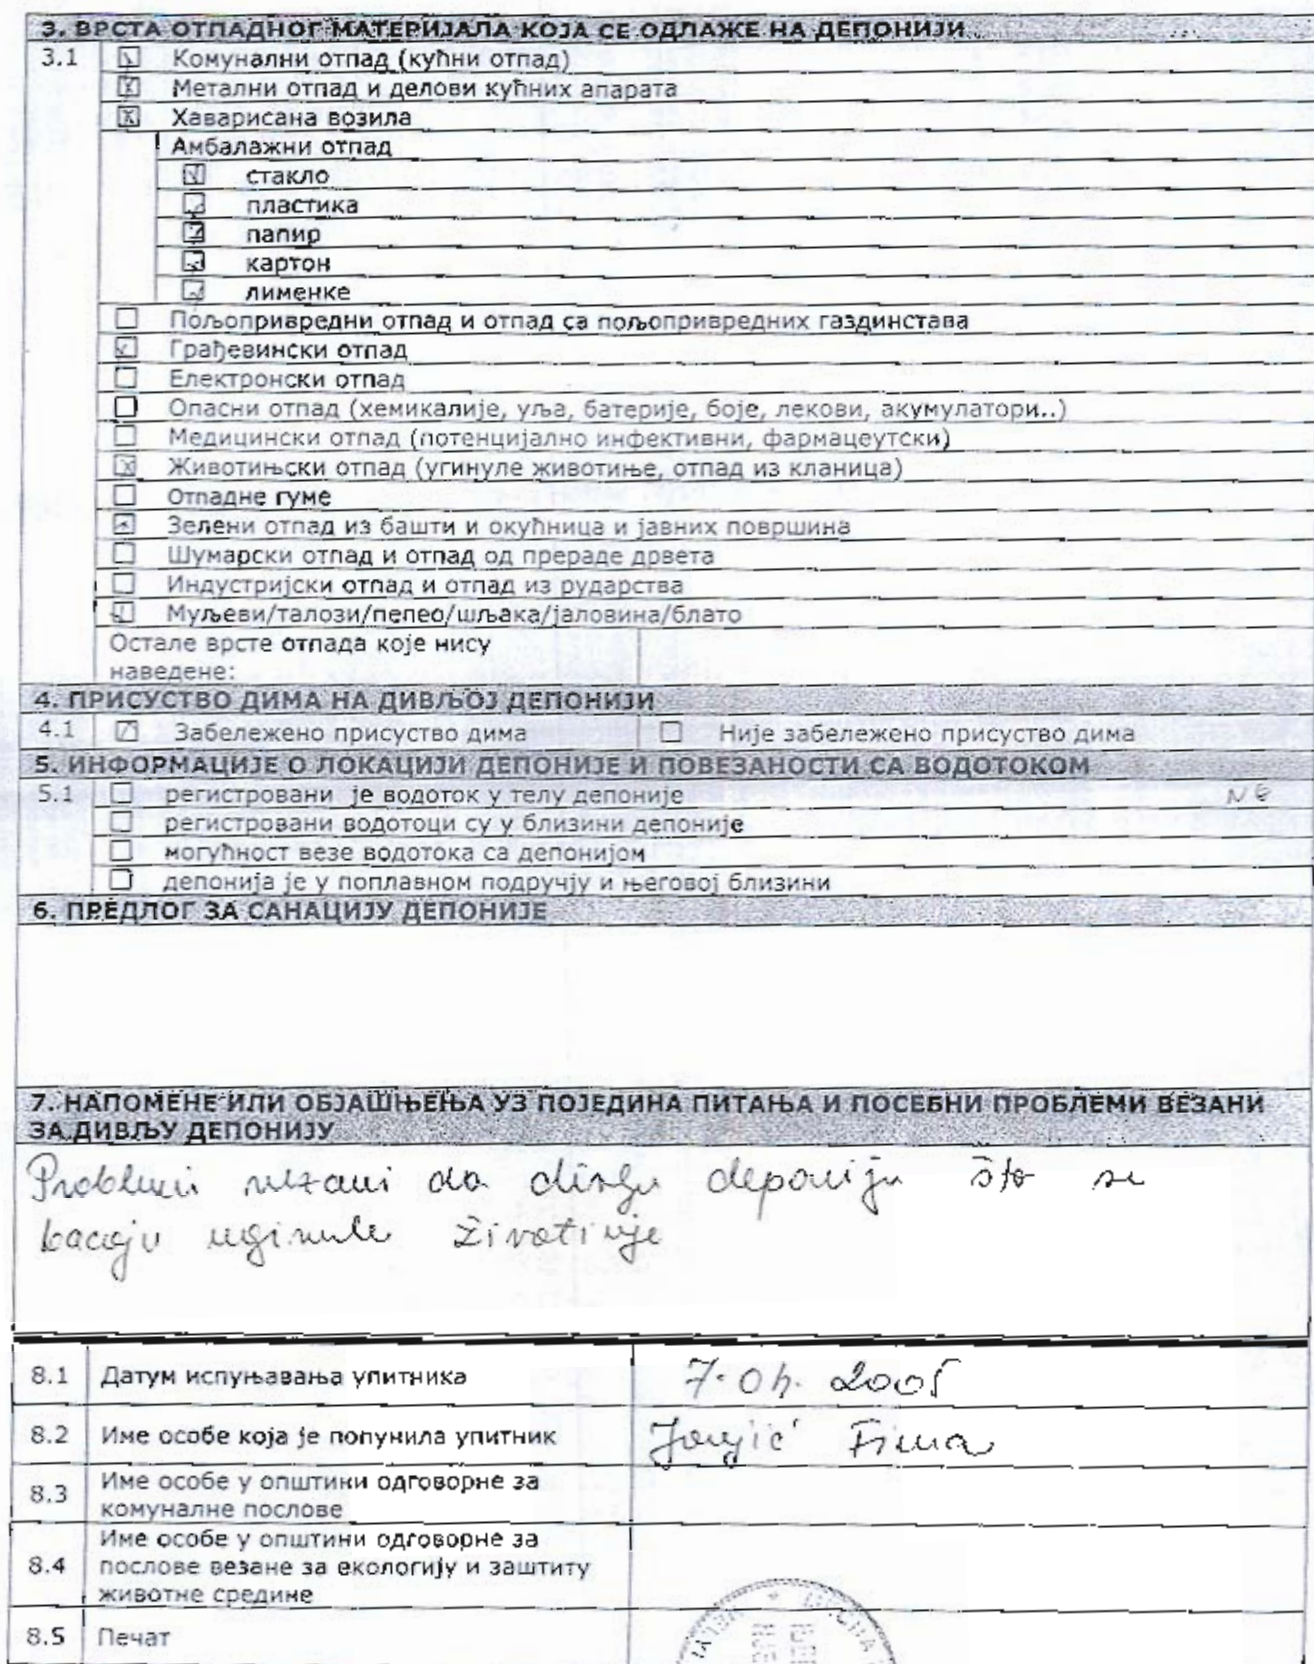 3. ВРСТА ОТПАДНОГ МАТЕРИЈАЛА КОЈА СЕ ОДЛАЖЕ НА ДЕПОНИЈИ
3.1 Комунални отпад (кућни отпад)
Метални отпад и делови кућних апарата
Хаварисана возила
Амбалажни отпад
стакло
пластика
папир
картон
лименке
Пољопривредни отпад и отпад са пољопривредних газдинстава
Грађевински отпад
Електронски отпад
Опасни отпад (хемикалије, уља, батерије, боје, лекови, акумулатори..)
Медицински отпад (потенцијално инфективни, фармацеутски)
Животињски отпад (угинуле животиње, отпад из кланица)
Отпадне гуме
Зелени отпад из башти и окућница и јавних површина
Шумарски отпад и отпад од прераде дрвета
Индустријски отпад и отпад из рударства
Муљеви/талози/пепео/шљака/јаловина/блато
Остале врсте отпада које нису
наведене:
4. ПРИСУСТВО ДИМА НА ДИВЉОЈ ДЕПОНИЈИ
4.1 Забележено присуство дима Није забележено присуство дима
5. ИНФОРМАЦИЈЕ О ЛОКАЦИЈИ ДЕПОНИЈЕ И ПОВЕЗАНОСТИ СА ВОДОТОКОМ
5.1 регистровани је водоток у телу депоније NE
регистровани водотоци су у близини депоније
могућност везе водотока са депонијом
депонија је у поплавном подручју и његовој близини
6. ПРЕДЛОГ ЗА САНАЦИЈУ ДЕПОНИЈЕ
7. НАПОМЕНЕ ИЛИ ОБЈАШЊЕЊА УЗ ПОЈЕДИНА ПИТАЊА И ПОСЕБНИ ПРОБЛЕМИ ВЕЗАНИ
ЗА ДИВЉУ ДЕПОНИЈУ
Problemi vezani da divlju deponiju što se
bacaju uginule životinje
8.1 Датум испуњавања упитника
8.2 Име особе која је попунила упитник
8.3 Име особе у општини одговорне за
комуналне послове
8.4 Име особе у општини одговорне за
послове везане за екологију и заштиту
животне средине
8.5 Печат